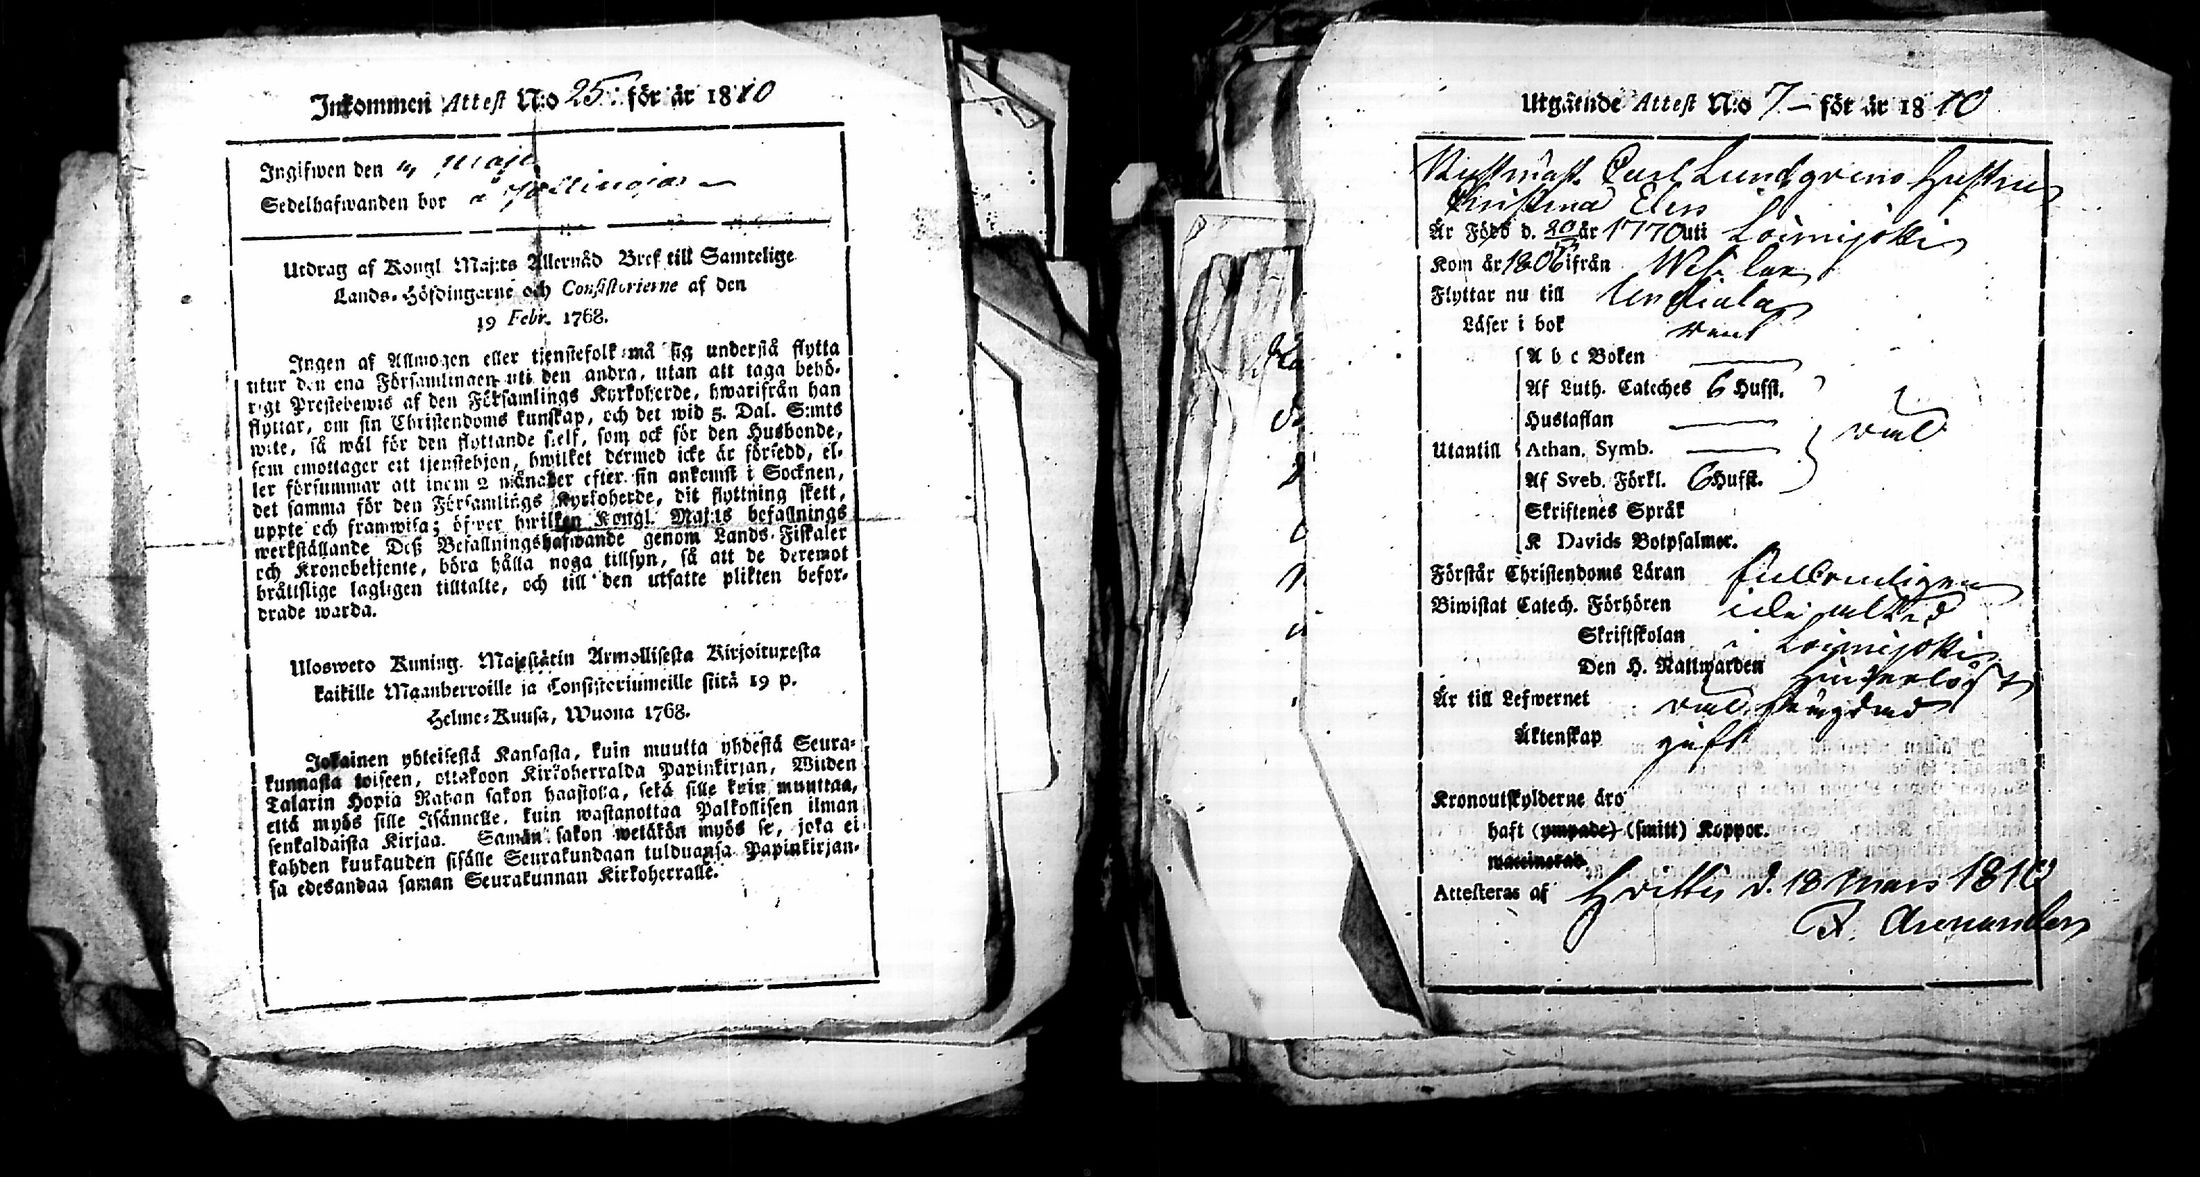 Inkommen Attest N:o 25. för år 1810
Ingifwen den 4 maji
Sedelhafwanden bor å
Utdrag af Kongl Maj:ts Allernåd Bref till Samtelige
Lands-Höfdingarne och Consistorierne af den
19 Febr. 1768.
Ingen af Allmogen eller tjenstefolk må sig understå flytta
utur den ena Församlingen uti den andra, utan att taga behö-
rigt Prestebewis af den Församlings Kyrkoherde, hwarifrån han
flyttar, om sin Christendoms kunskap, och det wid 5. Dal. S:mts
wite, så wäl för den flyttande sielf, som ock för den Husbonde,
som emottager ett tjenstehjon, hwilket dermed icke är försedd, el-
ler försummar att inom 2 månader efter sin ankomst i Socknen,
det samma för den Församlings Kyrkoherde, dit flyttning skett,
uppte och framwisa; öfwer hwilken Kongl. Maj:ts befallnings
werkställande Deß Befallningshafwande genom Lands-Fiskaler
och Kronobetjente, böra hålla noga tillsyn, så att de deremot
bråttslige lagligen tilltalte, och till den utsatte plikten befor-
drade warda.
Ulosweto Kuning. Majestätin Armollisesta Kirjoituxesta
kaikille Maanherroille ja Consistoriumeille siitä 19 p.
Helme-Kuusa, Wuona 1768.
Jokainen yhteisestä Kansasta, kuin muutta yhdestä Seura-
kunnasta toiseen, ottakoon Kirkoherralda Papinkirjan, Wiiden
Talarin Hopia Rahan sakon haastolla, sekä sille kuin muuttaa,
että myös sille Isännelle, kuin wastanottaa Palkollisen ilman
senkaldaista Kirjaa. Samän sakon wetäkön myös se, joka ei
kahden kuukauden sisälle Seurakundaan tulduansa Papinkirjan-
sa edesandaa saman Seurakunnan Kirkoherralle.
Utgående Attest N:o 7 – för år 1810
Carl Lundgrens Hustru
Kristina Elers
Är Född d. 20 år 1770 uti Loimijoki
Kom år 1806 ifrån
Flyttar nu till Urdiala
Läser i bok rent
A b c Boken
Af Luth. Cateches 6 Hufst.
Hustaflan
Utantill Athan. Symb. wäl
Af Sveb. Förkl. 6 Hufst.
Skriftenes Språk
K Davids Botpsalmer.
Förstår Christendoms Läran
Biwistat Catech. Förhören
Skriftskolan i Loimijoki
Den H. Nattwarden
Är till Lefwernet wäl
Äktenskap gift
Kronoutskylderne äro
haft (ympade) (smitt) Koppor.
waccinerad
Attesteras af Hvittis d. 18 Mars 1810